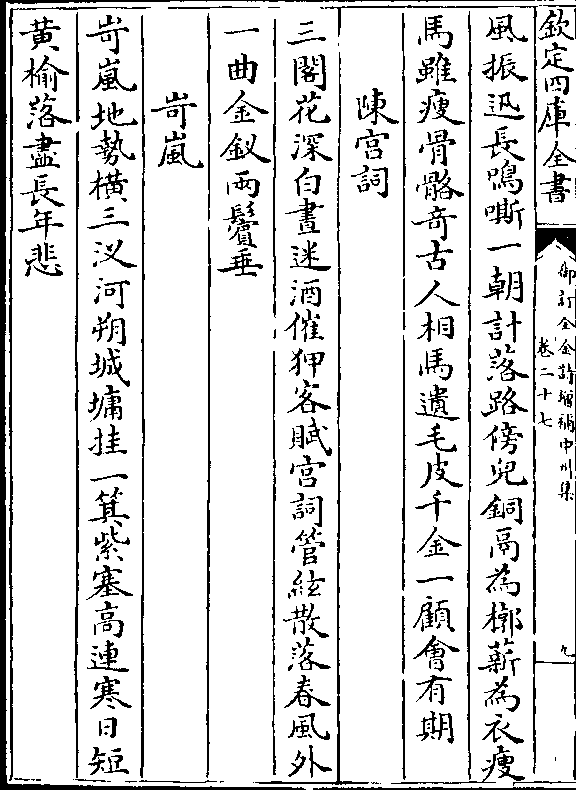 欽定四庫全書
御訂全金詩增補中州集
卷二十七
九
風振迅長鳴嘶一朝計落路傍兒銅鬲為槨薪為衣瘦
馬雖瘦骨骼奇古人相馬遺毛皮千金一顧會有期
陳宫詞
三閣花深白晝迷酒催狎客賦宫詞管絃散落春風外
一曲金釵兩鬢垂
岢嵐
岢嵐地勢横三汊河朔城墉挂一箕紫塞高連寒日短
黄榆落盡長年悲